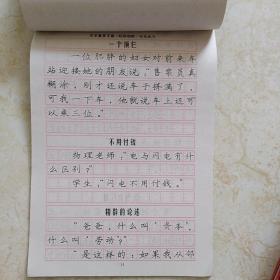 一个顶仨
一位肥胖的妇女对前来车
站迎接她的朋友说，“售票员真
糊涂，刚才还说车子挤满了，
可我一下车，他就说车上还可
以乘三位。”
不用付钱
物理老师：“电与闪电有什
么区别？”
学生：“闪电不用付钱。”
精辟的论述
“爸爸，什么叫‘资本’，
什么叫‘劳动’？”
“是这样的：如果我从邻